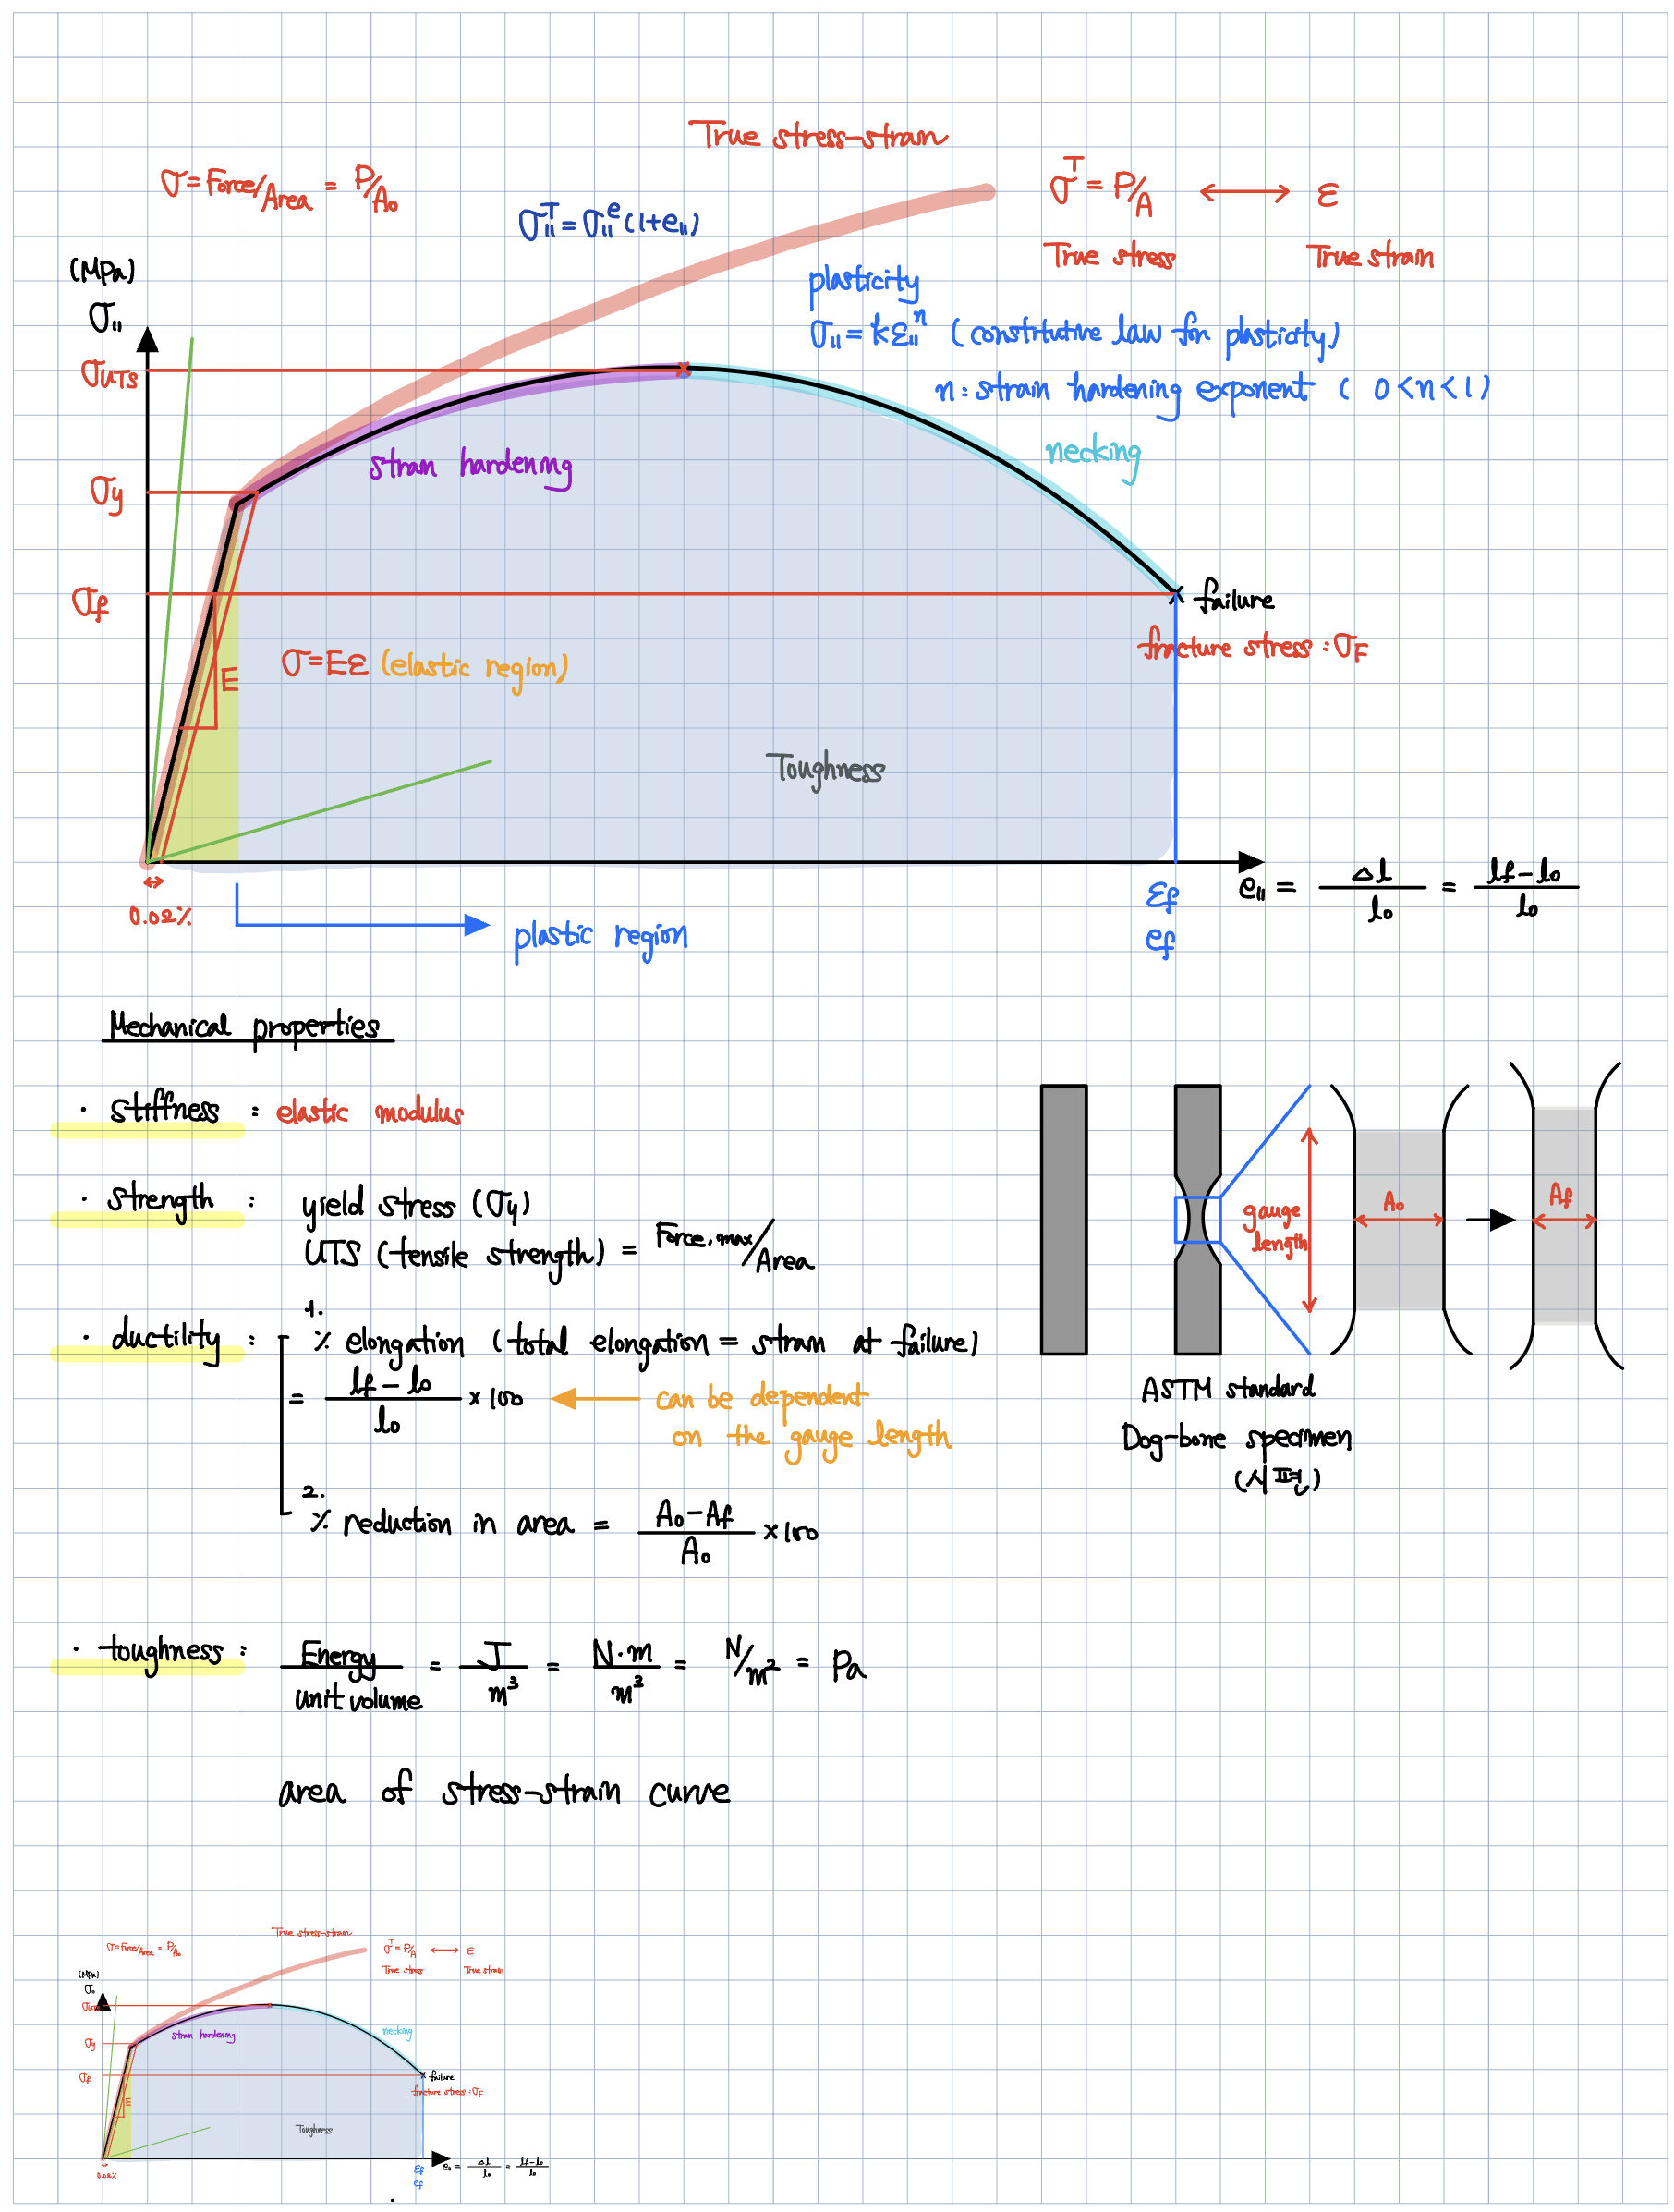 True stress-strain
σ = Force/Area = P/A₀
σᵀ = P/A ⟷ ε
True stress True strain
σ₁₁ᵀ = σ₁₁ᵉ (1+e₁₁)
(MPa)
σ₁₁
plasticity
σ₁₁ = kε₁₁ⁿ (constitutive law for plasticity)
n: strain hardening exponent ( 0<n<1 )
σUTS
necking
strain hardening
σy
σf
failure
fracture stress : σF
E
σ=Eε (elastic region)
Toughness
0.02%
εf
ef
e₁₁ = Δl/l₀ = lf-l₀/l₀
plastic region
Mechanical properties
· stiffness : elastic modulus
· strength : yield stress (σy)
UTS (tensile strength) = Force,max/Area
· ductility :
1.
% elongation (total elongation = strain at failure)
= lf-l₀/l₀ ×100 ← can be dependent
on the gauge length
2.
% reduction in area = A₀-Af/A₀ ×100
gauge
length
A₀ → Af
ASTM standard
Dog-bone specimen
(시편)
· toughness : Energy/unit volume = J/m³ = N·m/m³ = N/m² = Pa
area of stress-strain curve
True stress-strain
σ = Force/Area = P/A₀
σᵀ = P/A ⟷ ε
True stress True strain
(MPa)
σ₁₁
σUTS
strain hardening
necking
σy
σf
failure
fracture stress : σF
E
Toughness
0.02%
εf
ef
e₁₁ = Δl/l₀ = lf-l₀/l₀